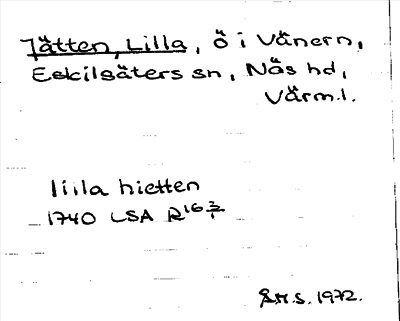 Jätten, Lilla, ö i Vänern,
Eskilsäters sn, Näs hd,
Värml.
lilla hietten
1740 LSA R16 3/1
S.H.S. 1972.